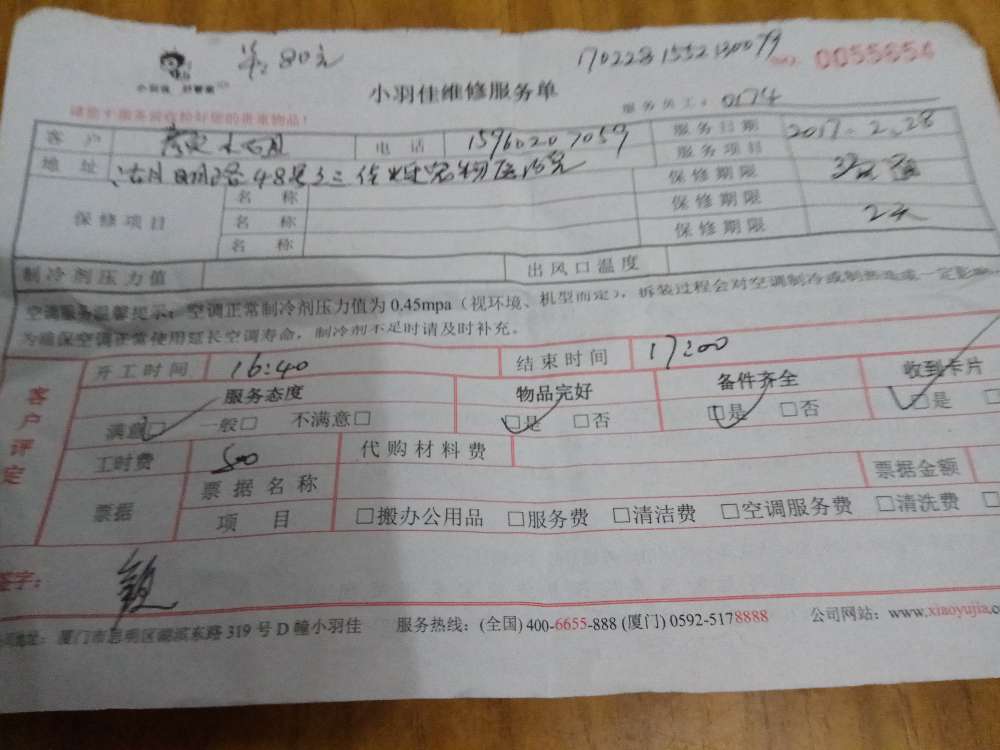 80元
1702281552130079
0055654
小羽佳 好管家
小羽佳维修服务单
服务员工: 0174
请您于服务前收检好您的贵重物品!
客户 电话 15960207059 服务日期 2017.2.28
服务项目
地址 48号 保修期限
保修项目 名称 保修期限
名称 保修期限 2天
名称
制冷剂压力值 出风口温度
空调服务温馨提示: 空调正常制冷剂压力值为 0.45mpa (视环境、机型而定), 拆装过程会对空调制冷或制热造成一定影响
为确保空调正常使用延长空调寿命, 制冷剂不足时请及时补充。
客户评定
开工时间 16:40 结束时间 17:00
服务态度 物品完好 备件齐全 收到卡片
满意□ 一般□ 不满意□ □是 □否 □是 □否 □是 □
工时费 代购材料费
票据 票据名称 票据金额
项目 □搬办公用品 □服务费 □清洁费 □空调服务费 □清洗费 □
签字:
公司地址: 厦门市思明区湖滨东路 319 号 D 幢小羽佳 服务热线: (全国) 400-6655-888 (厦门) 0592-5178888 公司网站: www.xiaoyujia.co